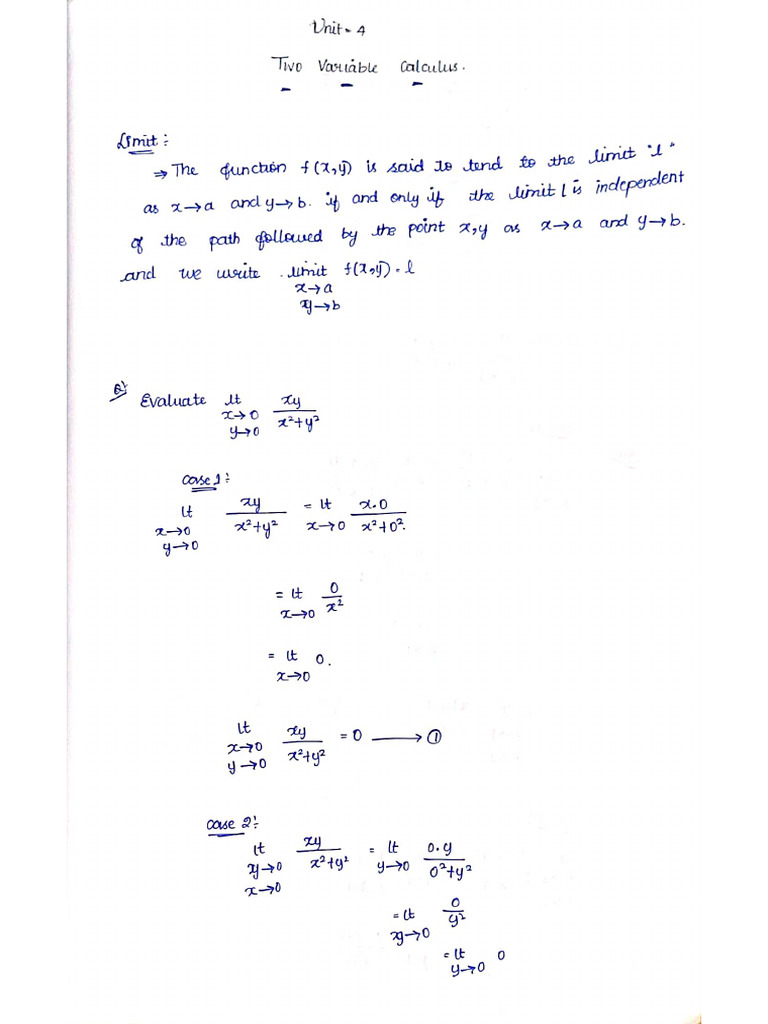 Unit - 4
Two Variable Calculus.
Limit :
⇒ The function f(x,y) is said to tend to the limit "l"
as x→a and y→b. if and only if the limit l is independent
of the path followed by the point x,y as x→a and y→b.
and we write . limit f(x,y) = l
x→a
y→b
Q) Evaluate lt xy/(x²+y²)
x→0
y→0
Case 1 :
lt xy/(x²+y²) = lt x.0/(x²+0²).
x→0 x→0
y→0
= lt 0/x²
x→0
= lt 0.
x→0
lt xy/(x²+y²) = 0 ⟶ ①
x→0
y→0
Case 2 :
lt xy/(x²+y²) = lt 0.y/(0²+y²)
y→0 y→0
x→0
= lt 0/y²
y→0
= lt 0
y→0